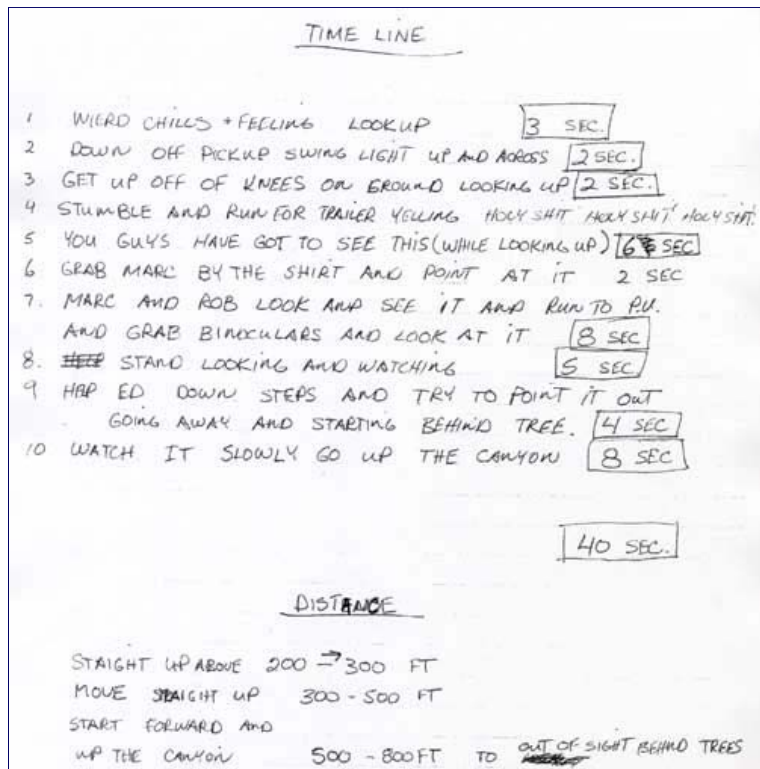 TIME LINE
1 WIERD CHILLS + FEELING LOOKUP 3 SEC.
2 DOWN OFF PICKUP SWING LIGHT UP AND ACROSS 2 SEC.
3 GET UP OFF OF KNEES ON GROUND LOOKING UP 2 SEC.
4 STUMBLE AND RUN FOR TRAILER YELLING HOLY SHIT HOLY SHIT HOLY SHIT.
5 YOU GUYS HAVE GOT TO SEE THIS (WHILE LOOKING UP) 6 SEC
6 GRAB MARC BY THE SHIRT AND POINT AT IT 2 SEC
7. MARC AND ROB LOOK AND SEE IT AND RUN TO P.U.
AND GRAB BINOCULARS AND LOOK AT IT 8 SEC
8. STAND LOOKING AND WATCHING 5 SEC
9 HELP ED DOWN STEPS AND TRY TO POINT IT OUT
GOING AWAY AND STARTING BEHIND TREE. 4 SEC
10 WATCH IT SLOWLY GO UP THE CANYON 8 SEC
40 SEC.
DISTANCE
STRAIGHT UP ABOVE 200 → 300 FT
MOVE STRAIGHT UP 300 - 500 FT
START FORWARD AND
UP THE CANYON 500 - 800 FT TO OUT OF SIGHT BEHIND TREES